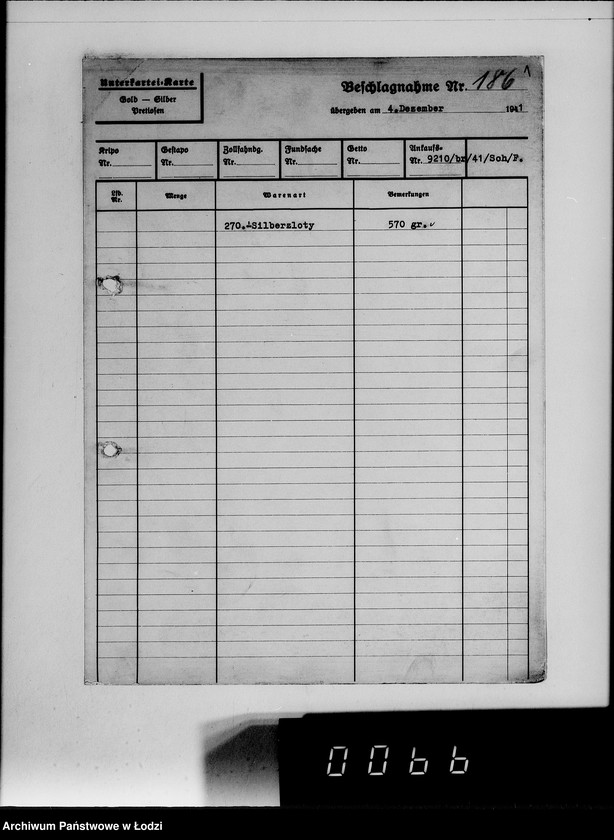 Unterkartei-Karte
Gold — Silber
Pretiosen
Beschlagnahme Nr. 186
übergeben am 4.Dezember 1941
Kripo Gestapo Zollfahndg. Fundsache Getto Ankaufs-
Nr. Nr. Nr. Nr. Nr. Nr. 9210/br/41/Sch/P.
Lfd. Nr. Menge Warenart Bemerkungen
270.-Silberzloty 570 gr.
0066
Archiwum Państwowe w Łodzi